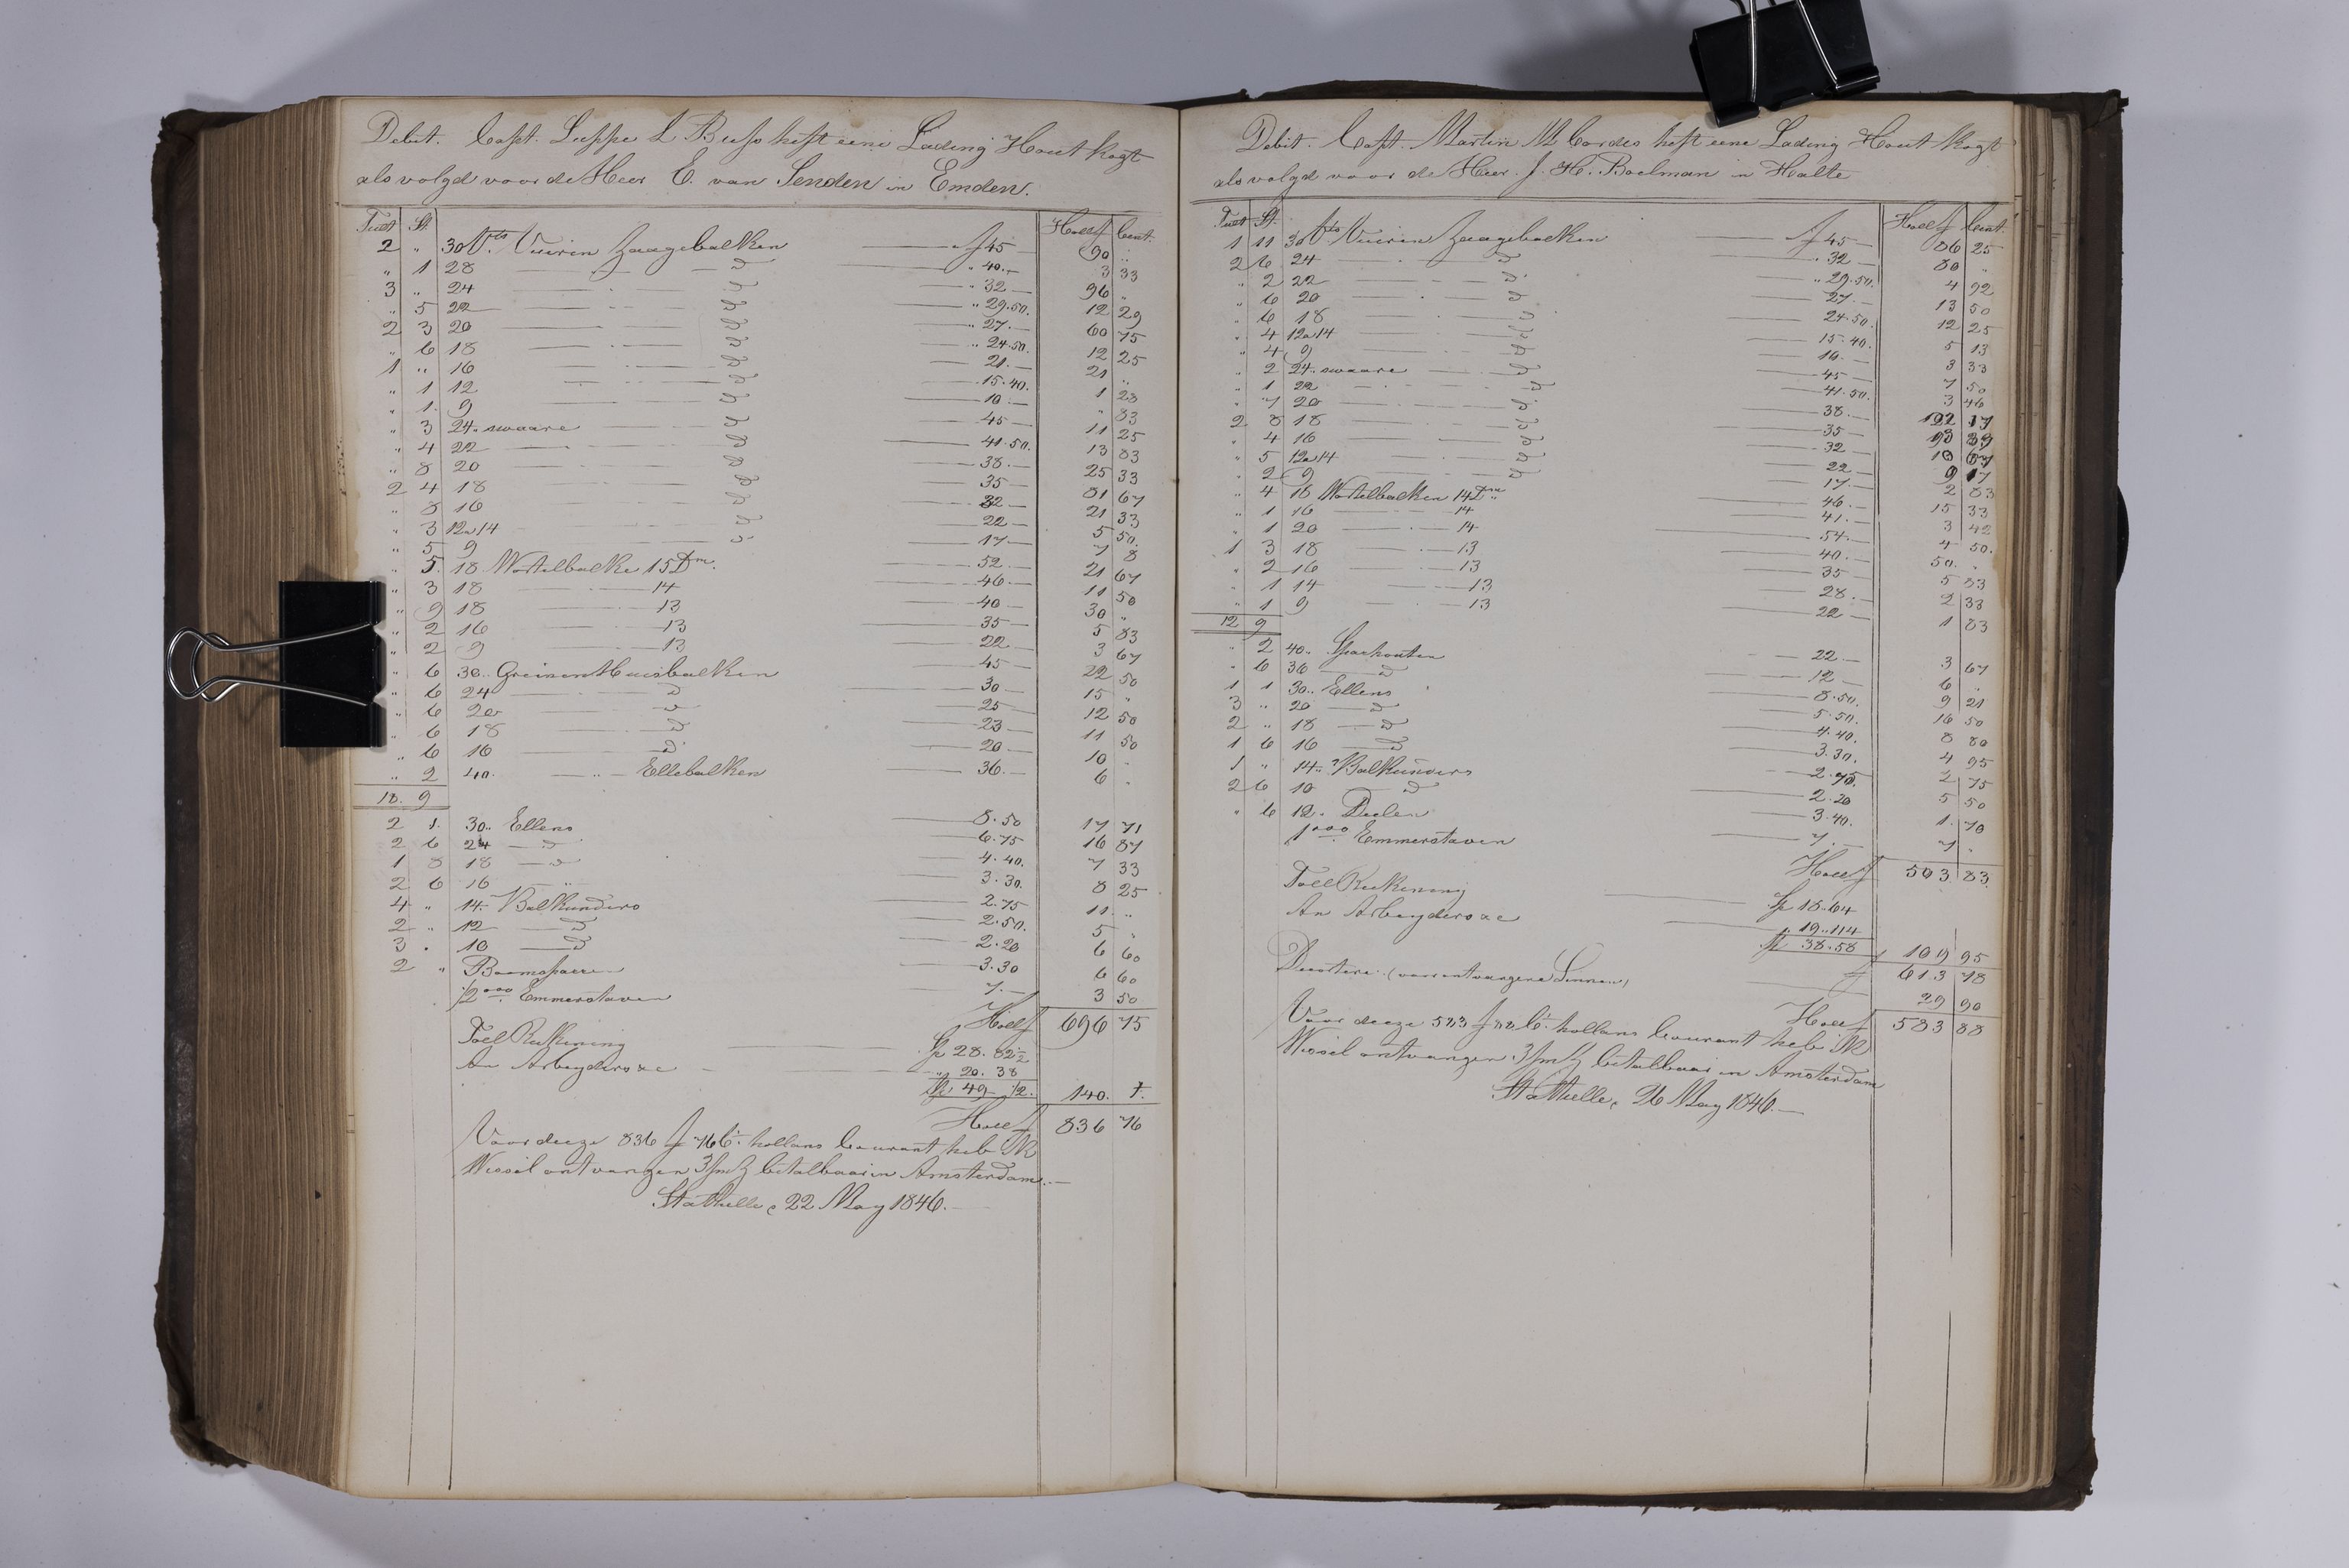 Debit. Capt. Luppe L Buss heft eene Lading Hout kogt
als volgd voor de Heer E. van Senden in Emden.
Tult St. Holl f Cent.
2 " 30 Vts. Vuiren Zaagebalken f 45 — 90 "
" 1 28 — d " 40. — 3 33
3 " 24 — d " 32 — 96 "
" 5 22 — d " 29.50. 12 29
2 3 20 — d " 27. — 60 75
" 6 18 — d " 24.50. 12 25
1 " 16 — d 21. — 21 "
" 1 12 — d 15.40. 1 28
" 1. 9 — d 10. — " 83
" 3 24 " swaare — d 45 — 11 25
" 4 22 — d 41.50. 13 83
" 8 20 — d 38. — 25 33
2 4 18 — d 35 — 81 67
" 8 16 — d 32 — 21 33
" 3 12 a 14 — d 22 — 5 50.
" 5 9 — d 17 — 7 8
" 5 18 Wortelbalke 15 Dm. 52. — 21 67
" 3 18 — 14 46. — 11 50
" 9 18 — 13 40 — 30 "
" 2 16 — 13 35 — 5 83
" 2 9 — 13 22 — 3 67
" 6 30 " Greinen Huisbalken 45 — 22 50
" 6 24 — d 30 — 15 "
" 6 20 — d 25 — 12 50
" 6 18 — d 23 — 11 50
" 6 16 — d 20 — 10 "
" 2 40. — " — Ellebalken 36. — 6 "
18. 9
2 1. 30 " Ellens 8.50 17 71
2 6 24 — d 6.75 16 87
1 8 18 — d 4.40. 7 33
2 6 16 — " 3.30. 8 25
4 " 14. Balkunders 2.75 11. "
2 " 12 — d 2.50. 5 "
3 " 10 — d 2.20 6 60
2 " Boomspaeren 3.30 6 60
1/2 000 Emmerstaven 7. — 3 50
Holl f 696 75
Toll Rekening Sp 28. 82 1/2
An Arbeyders &c " 20. 38
Sp 49 — 1/2. 140. 1.
Holl f 836 76
Voor deeze 836 f 76 Ct. hollans Courant heb IK
Wissel ontvangen 3/m betalbaar in Amsterdam. —
Stathelle, 22 May 1846. —
Debit. Capt. Martin M Cordes heft eene Lading Hout kogt
als volgd voor de Heer. J. H. Boelman in Halte
Tult St. Holl f Cent.
1 11 30 Vts Vuiren Zaagebalken f 45 — 86 25
2 6 24 — d " 32 — 80 "
" 2 22 — d " 29.50. 4 92
" 6 20 — d 27. — 13 50
" 6 18 — d 24.50. 12 25
" 4 12 a 14 — d 15.40. 5 13
" 4 9 — d 10. — 3 33
" 2 24 " swaare — d 45 — 7 50
" 1 22 — d 41.50. 3 46
" 7 20 — d 38. — 22 17
2 8 18 — d 35 — 93 33
" 4 16 — d 32 — 10 67
" 5 12 a 14 — d 22 — 9 17
" 2 9 — d 17. — 2 83
" 4 18 Wortelbalken 14 Dm. 46. — 15 33
" 1 16 — 14 41. — 3 42
" 1 20 — 14 54. — 4 50.
1 3 18 — 13 40. — 50. "
" 2 16 — 13 35 — 5 83
" 1 14 — 13 28. — 2 33
" 1 9 — 13 22 — 1 83
12 9
" 2 40 " Sparhouten 22 — 3 67
" 6 36 — d 12 — 6 "
1 1 30 " Ellens 8.50. 9 21
3 " 20 — d 5.50. 16 50
2 " 18 — d 4.40. 8 80
1 6 16 — d 3.30. 4 95
1 " 14 " Balkunders 2.75. 2 75
2 6 10 — d 2.20 5 50
" 6 12. Deelen 3.40. 1. 70
1000 Emmerstaven 7. — 7 "
Holl f 503 83
Toll Rekening Sp 18.64
An Arbeyders &c " 19.114
Sp 38.58 109 95
f 613 78
Decortere. (voor ontvangene Linnen) 29 90
Holl f 583 88
Voor deeze 583 f 88 Ct. hollans Courant heb IK
Wissel ontvangen 3/m betalbaar in Amsterdam
Stathelle, 26 May 1846. —